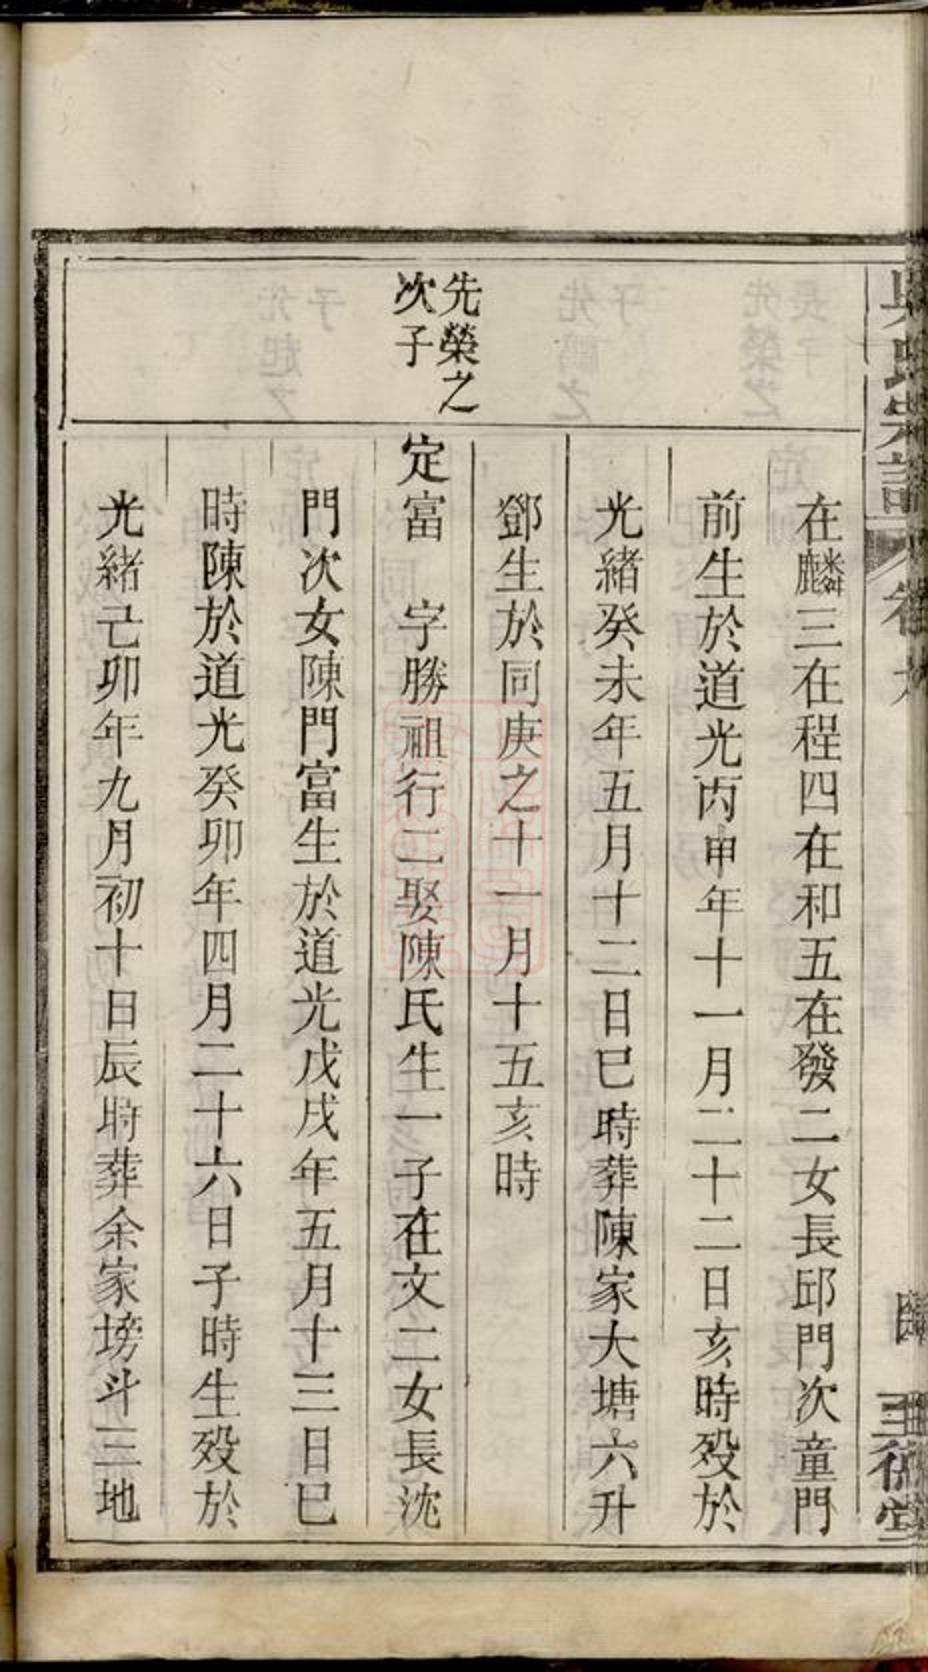 在麟三在程四在和五在發二女長邱門次童門
前生於道光丙申年十一月二十二日亥時歿於
光緒癸未年五月十二日巳時葬陳家大塘六升
鄧生於同庚之十一月十五亥時
先榮之
次子
定富　字勝祖行二娶陳氏生一子在文二女長沈
門次女陳門富生於道光戊戌年五月十三日巳
時陳於道光癸卯年四月二十六日子時生歿於
光緒己卯年九月初十日辰時葬余家塝斗三地